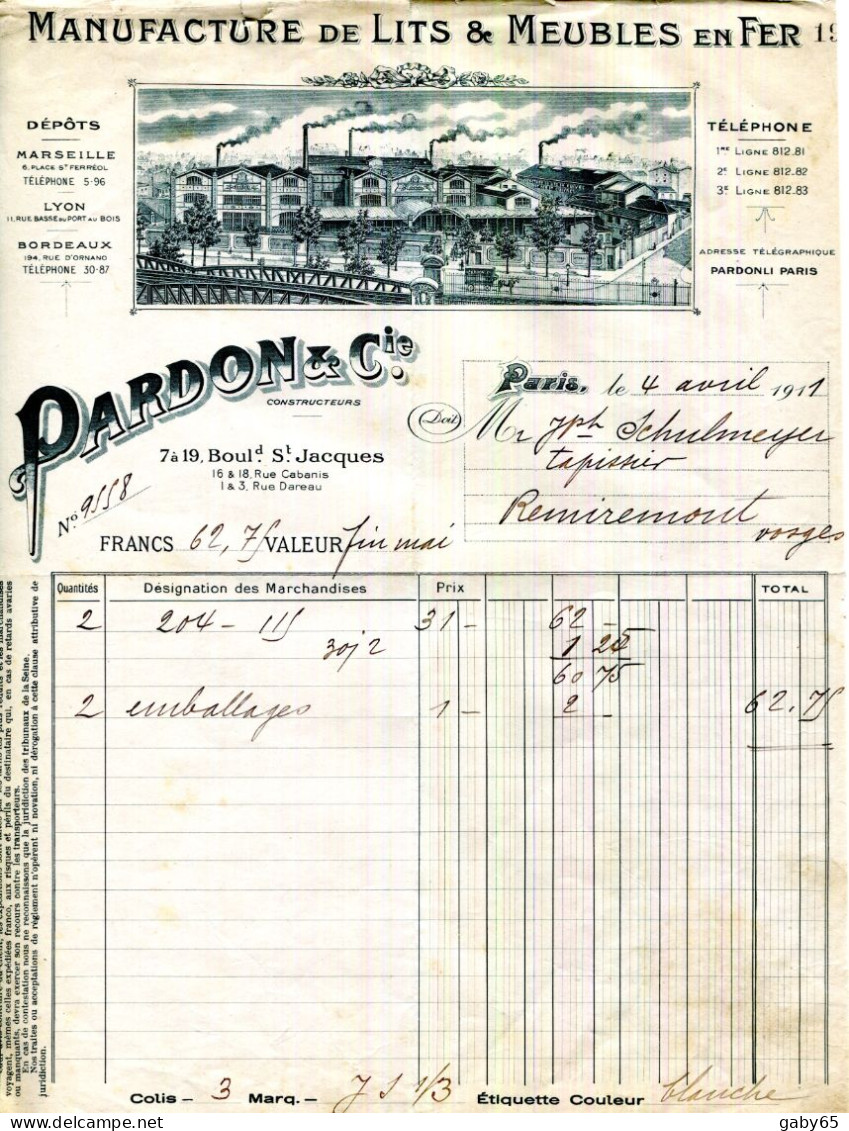 MANUFACTURE DE LITS & MEUBLES EN FER 19
DÉPÔTS
MARSEILLE
6, PLACE ST FERRÉOL
TÉLÉPHONE 5-96
LYON
11, RUE BASSE DU PORT AU BOIS
BORDEAUX
194, RUE D'ORNANO
TÉLÉPHONE 30-87
TÉLÉPHONE
1RE LIGNE 812.81
2E LIGNE 812.82
3E LIGNE 812.83
ADRESSE TÉLÉGRAPHIQUE
PARDONLI PARIS
PARDON & Cie.
CONSTRUCTEURS
7 à 19, Bould. St. Jacques
16 & 18, Rue Cabanis
1 & 3, Rue Dareau
No 9558
Paris, le 4 avril 1911
Doit
Mr Jph Schulmeyer
tapissier
Remiremont
vosges
FRANCS 62,75 VALEUR fin mai
Quantités Désignation des Marchandises Prix TOTAL
2 204 - 115 31 - 62 -
30j 2 1 25
60 75
2 emballages 1 - 2 - 62,75
voyagent, mêmes celles expédiées franco, aux risques et périls du destinataire qui, en cas de retards avaries
ou manquants, devra exercer son recours contre les transporteurs.
En cas de contestation nous ne reconnaissons que la juridiction des tribunaux de la Seine.
Nos traites ou acceptations de règlement n'opèrent ni novation, ni dérogation à cette clause attributive de
juridiction.
Colis - 3 Marq. - J S 1/3 Étiquette Couleur blanche
delcampe.net
gaby65